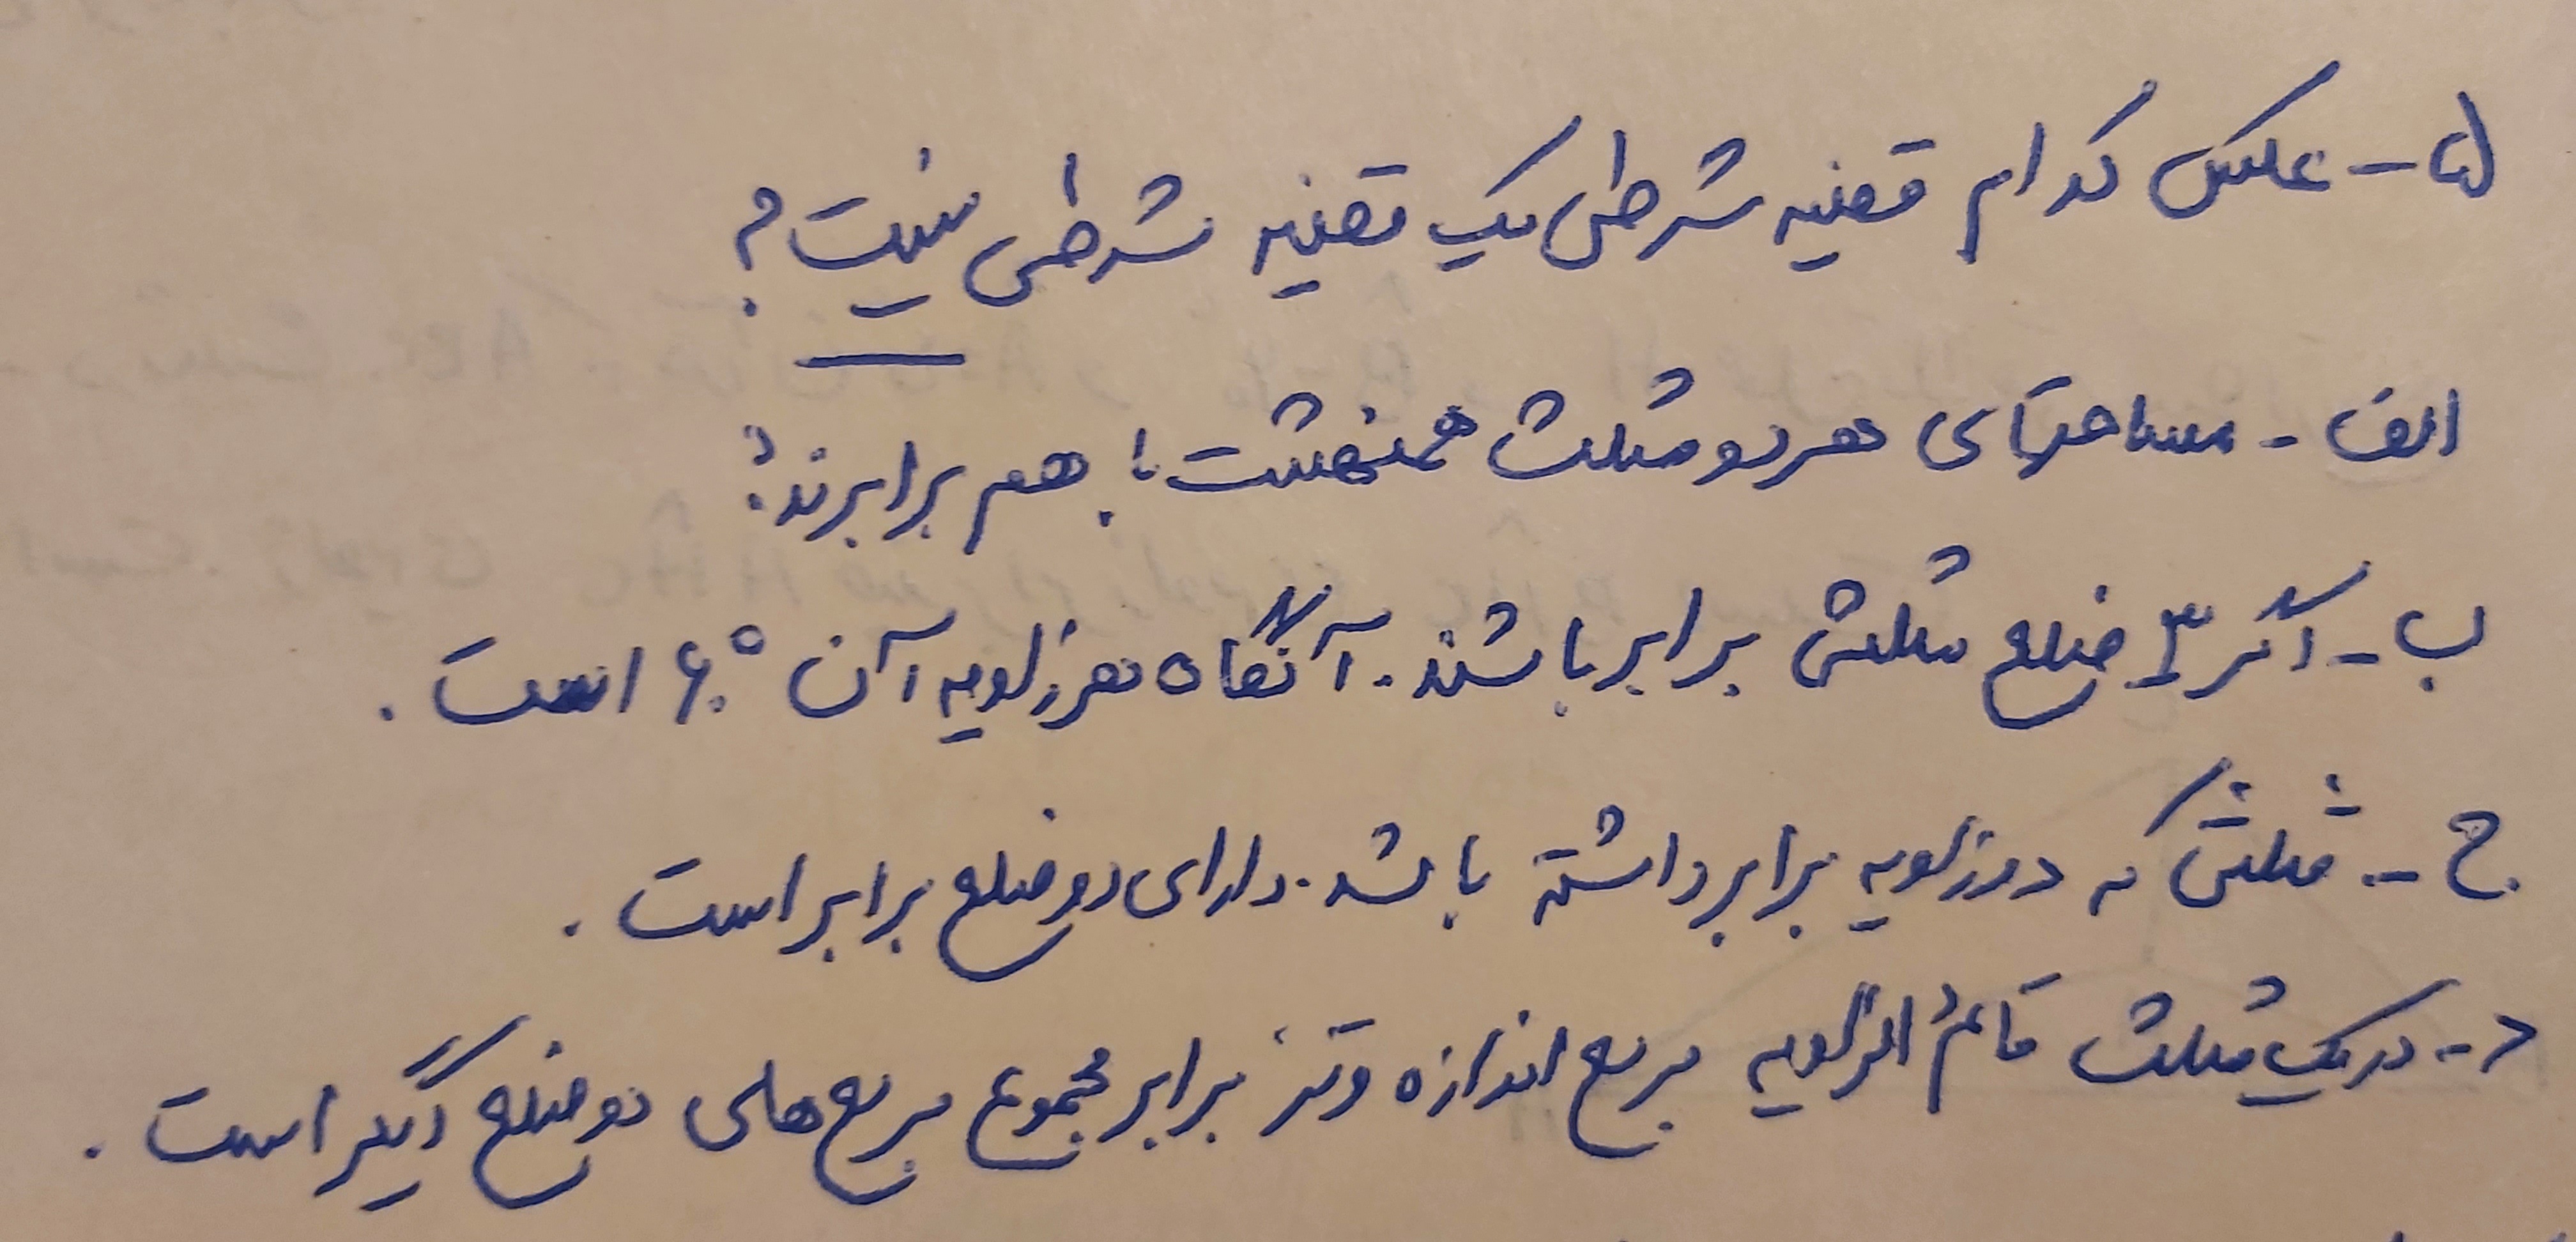 ۵- عکس کدام قضیه شرطی یک قضیه شرطی نیست؟
الف - مساحتهای هر دو مثلث همنهشت با هم برابرند؟
ب - اگر ۳ ضلع مثلثی برابر باشند. آنگاه هر زاویه آن ۶۰° است.
ج - مثلثی که دو زاویه برابر داشته باشد. دارای دو ضلع برابر است.
د - در یک مثلث قائم الزاویه مربع اندازه وتر برابر مجموع مربع های دو ضلع دیگر است.